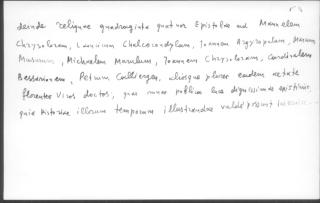 deinde reliquae quadraginta quatuor Epistolae ad Manuelem
Chrysoloram, Laonicum Chalcocondylam, Joannem Argyropulum, Marcum
Musurum, Michaelem Marulum, Joannem Chrysoloram, Cardinalem
Bessarionem, Petrum Calliergem, aliosque plures eadem aetate
florentes viros doctos, quae omnes publica luce dignissimae
quia Historiae illorum temporum illustrandae valde possunt